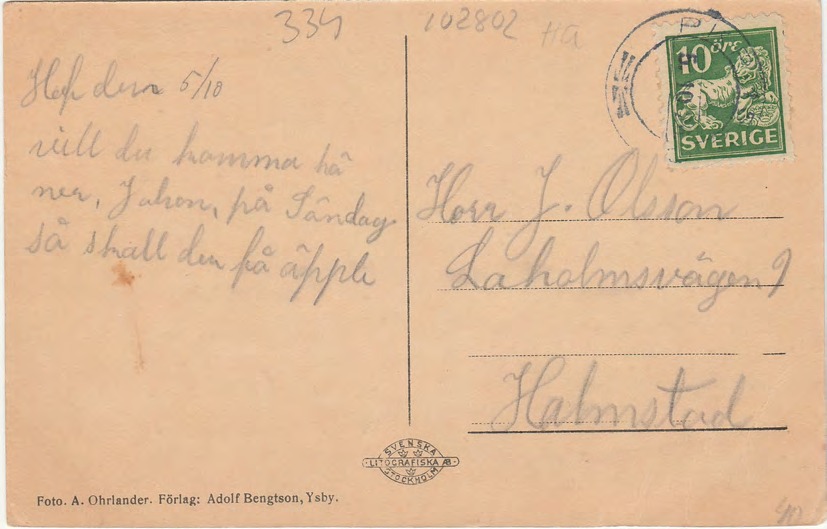 334
102802
Ha
10 öre
SVERIGE
den 5/10
vill du komma hä
ner, Johon, på Söndag
så skall du få äpple
Herr J. Olsson
Laholmsvägen 9
Halmstad
SVENSKA
LITOGRAFISKA AB
STOCKHOLM
Foto. A. Ohrlander. Förlag: Adolf Bengtson, Ysby.